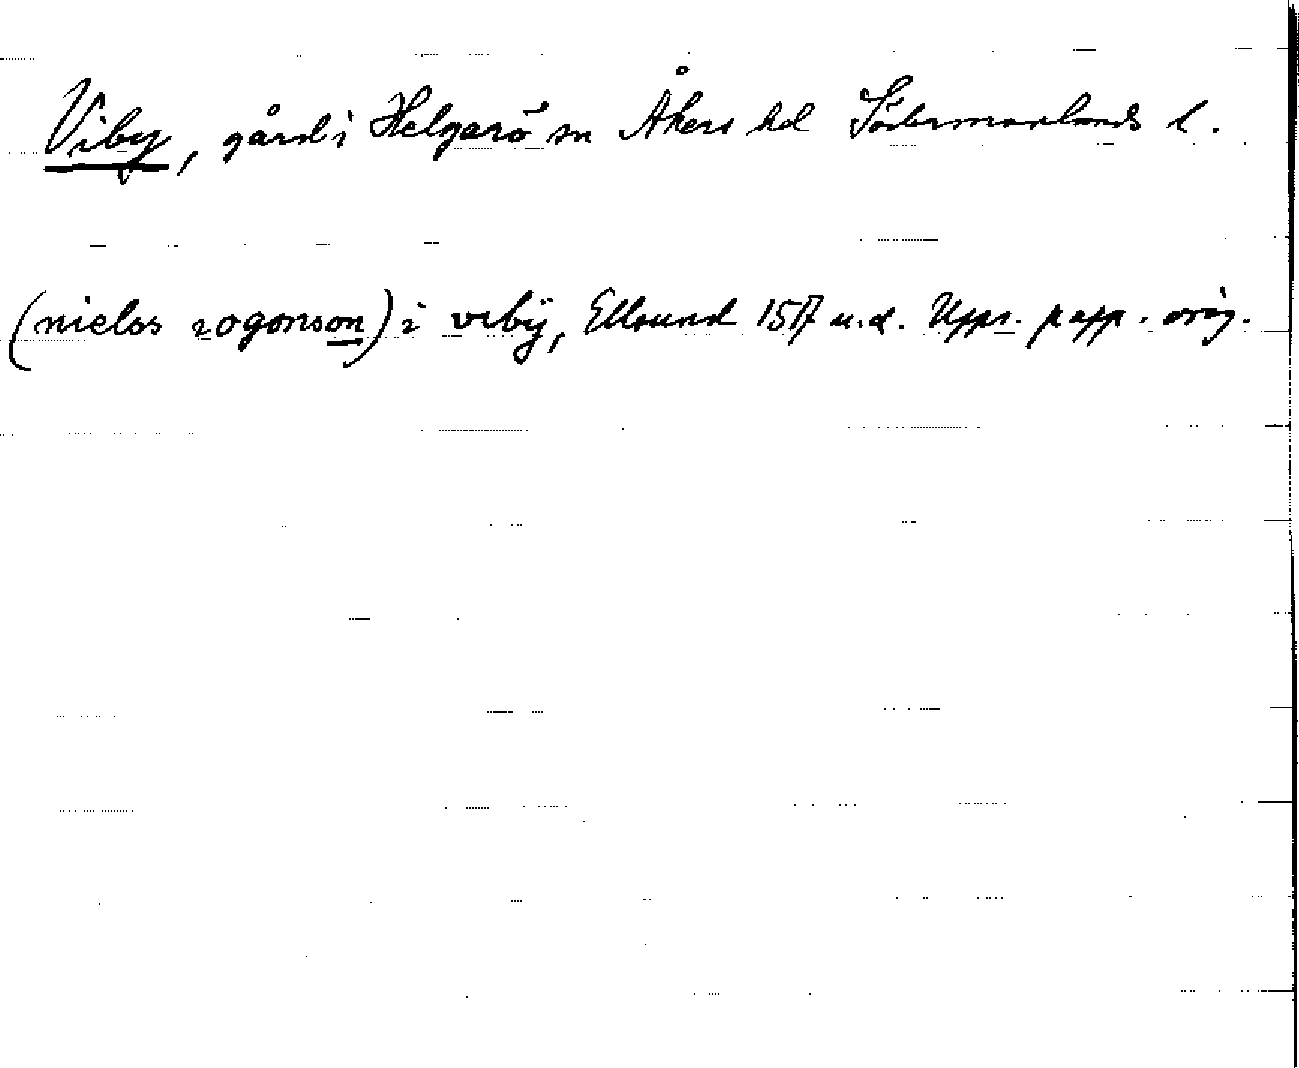 Viby, gård i Helgarö sn Åkers hd Södermanlands l.
(nielss rogonson) i viby̋, Ellsund 1517 u.d. Upps. papp. orig.